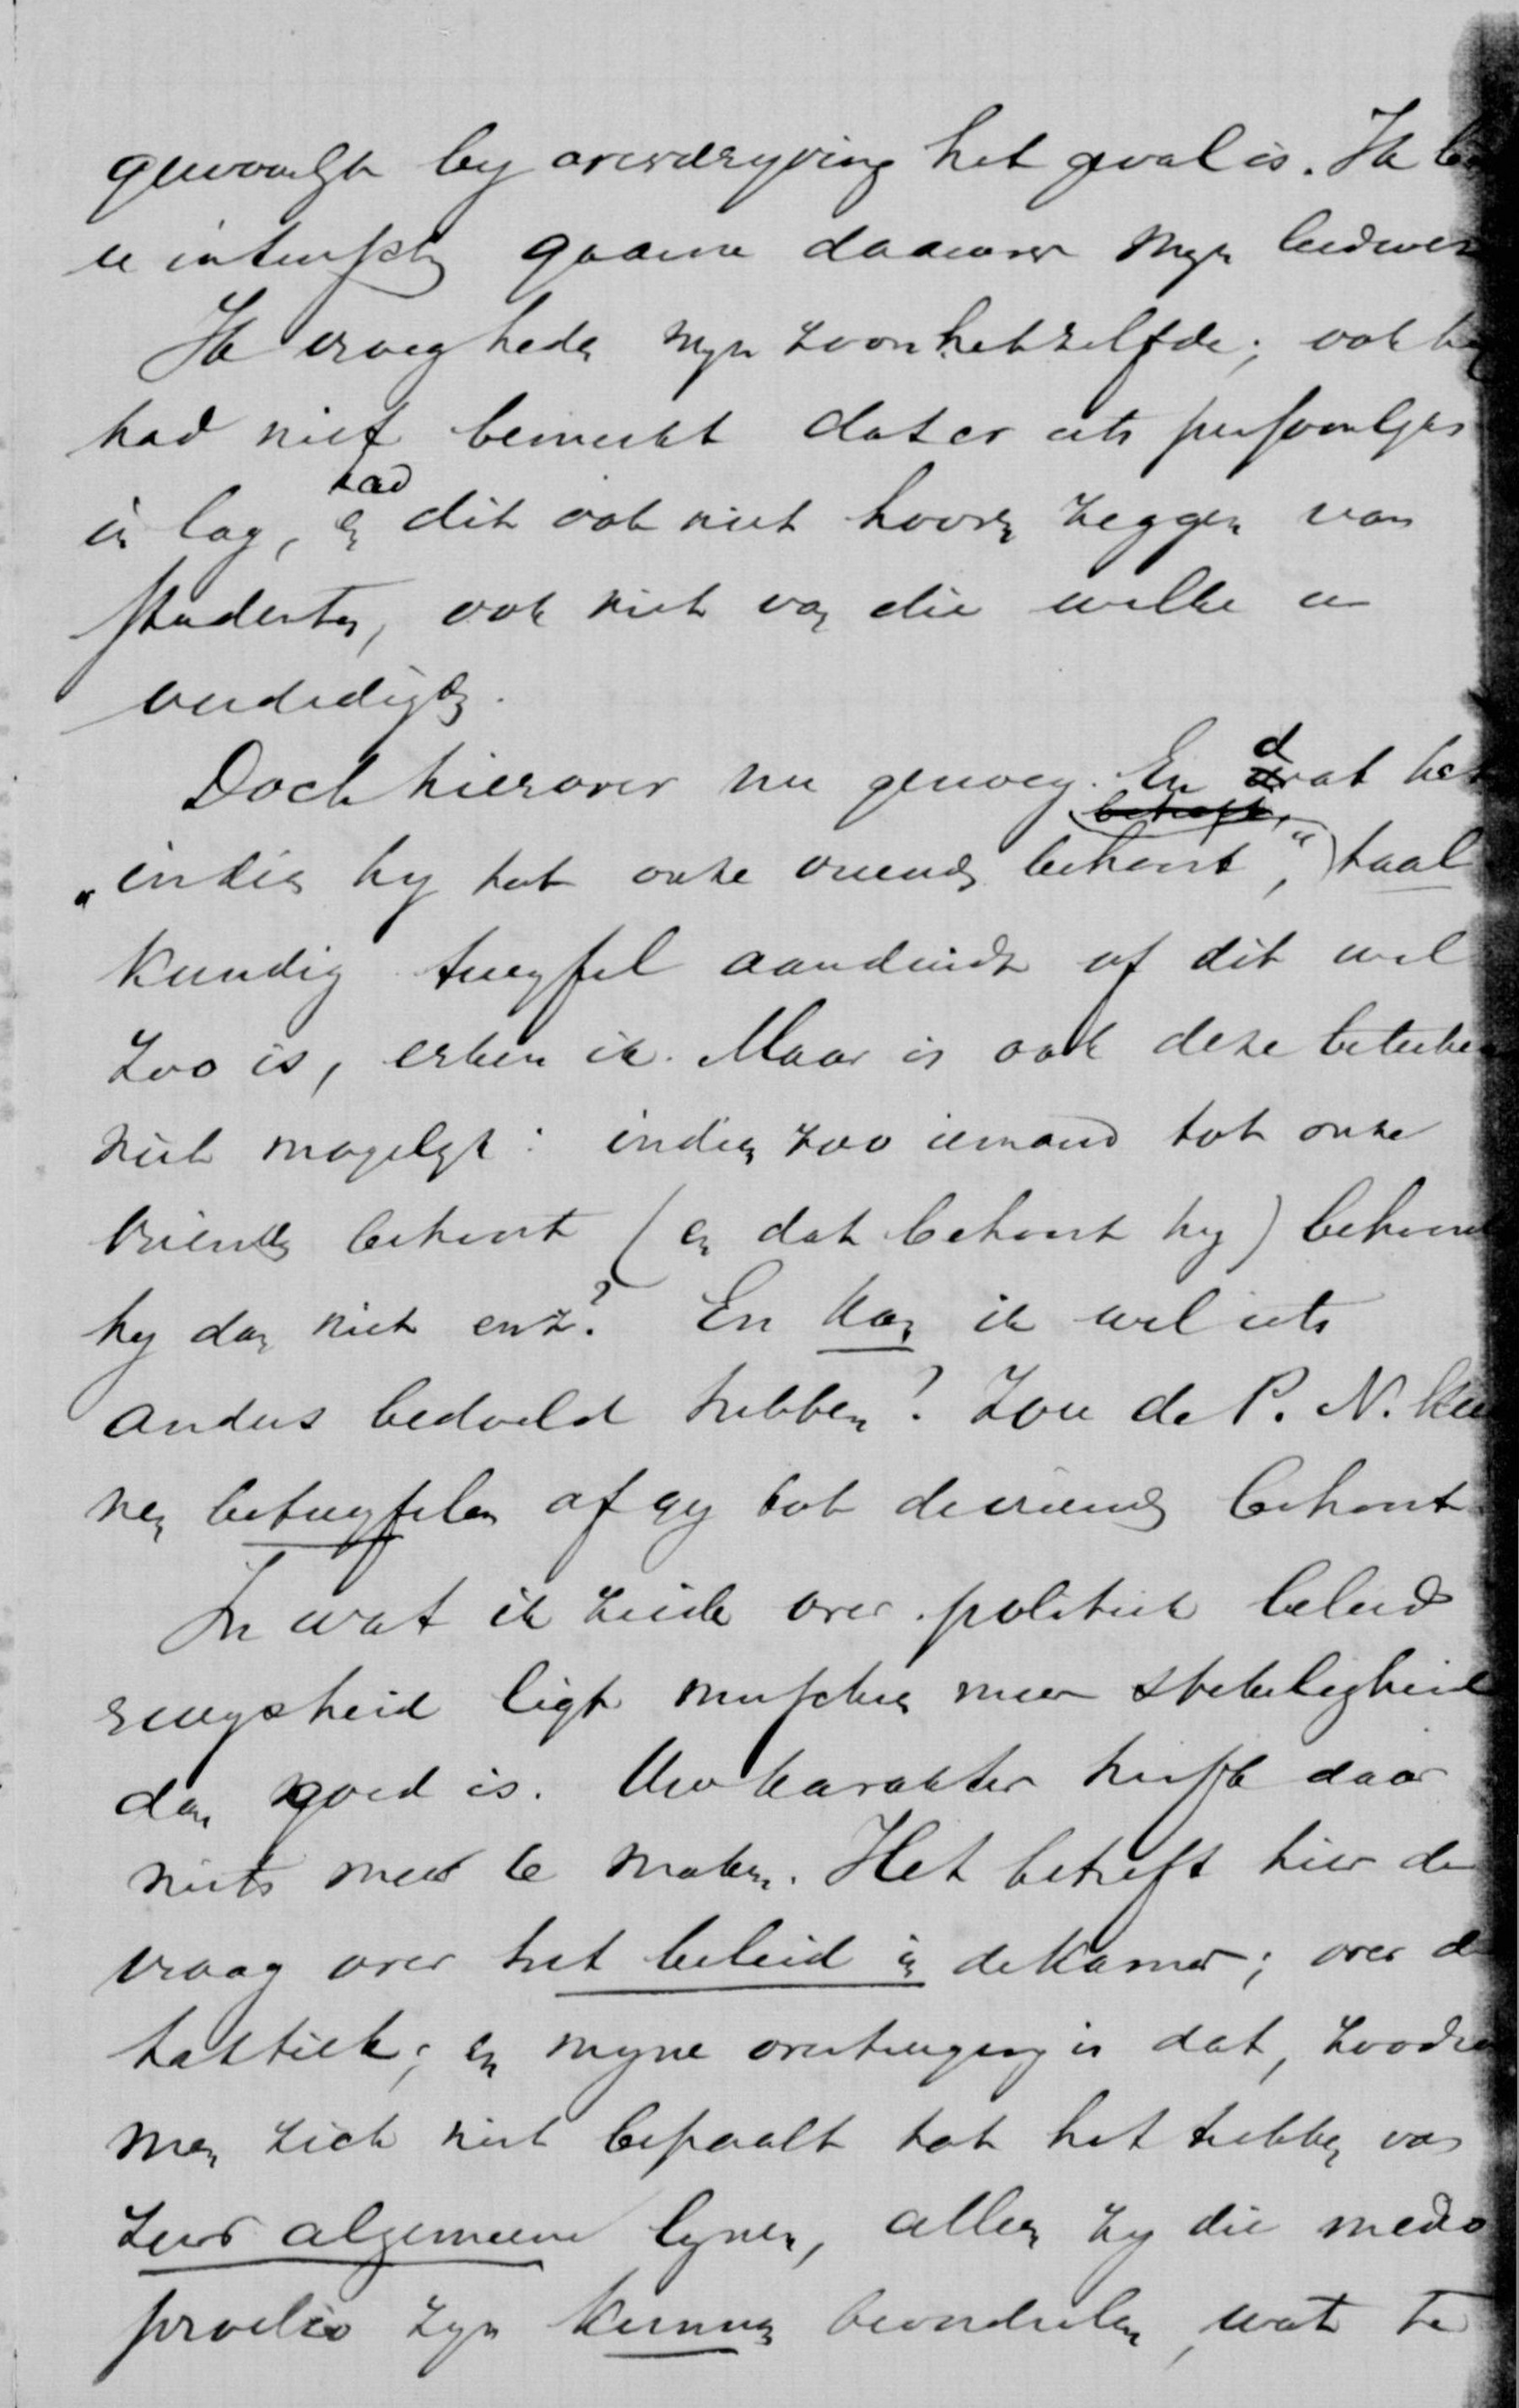 gewoonlyk by overdryving het geval is. Ik be
u intusschen gaarne daarover myn leedwez
Ik vroeg heden myn zoon hetzelfde; ook hy
had niet bemerkt dat er iets persoonlyks
in lag, en had dit ook niet hooren zeggen van
studenten, ook niet van die welke u
verdedigden.
Doch hierover nu genoeg. En dat het
„indien hy tot onze vrienden behoort," taal
kundig twyfel aanduidt of dit wel
zoo is, erken ik. Maar is ook deze beteeken
niet mogelyk: indien zoo iemand tot onze
vrienden behoort (en dat behoort hy) behoord
hy dan niet enz.? En kan ik wel iets
anders bedoeld hebben? Zou de P. N. kun
nen betwyfelen of gy tot de vrienden behoort
In wat ik zeide over politiek beleid
ligt misschien meer stekeligheid
dan goed is. Uw karakter heeft daar
niets mede te maken. Het betreft hier de
vraag over het beleid in de Kamer; over de
taktiek; en myne overtuiging is dat, zoodra
men zich niet bepaalt tot het trekken van
zeer algemeene lynen, alleen zy die medio
proelio zyn kunnen beoordeelen, wat te